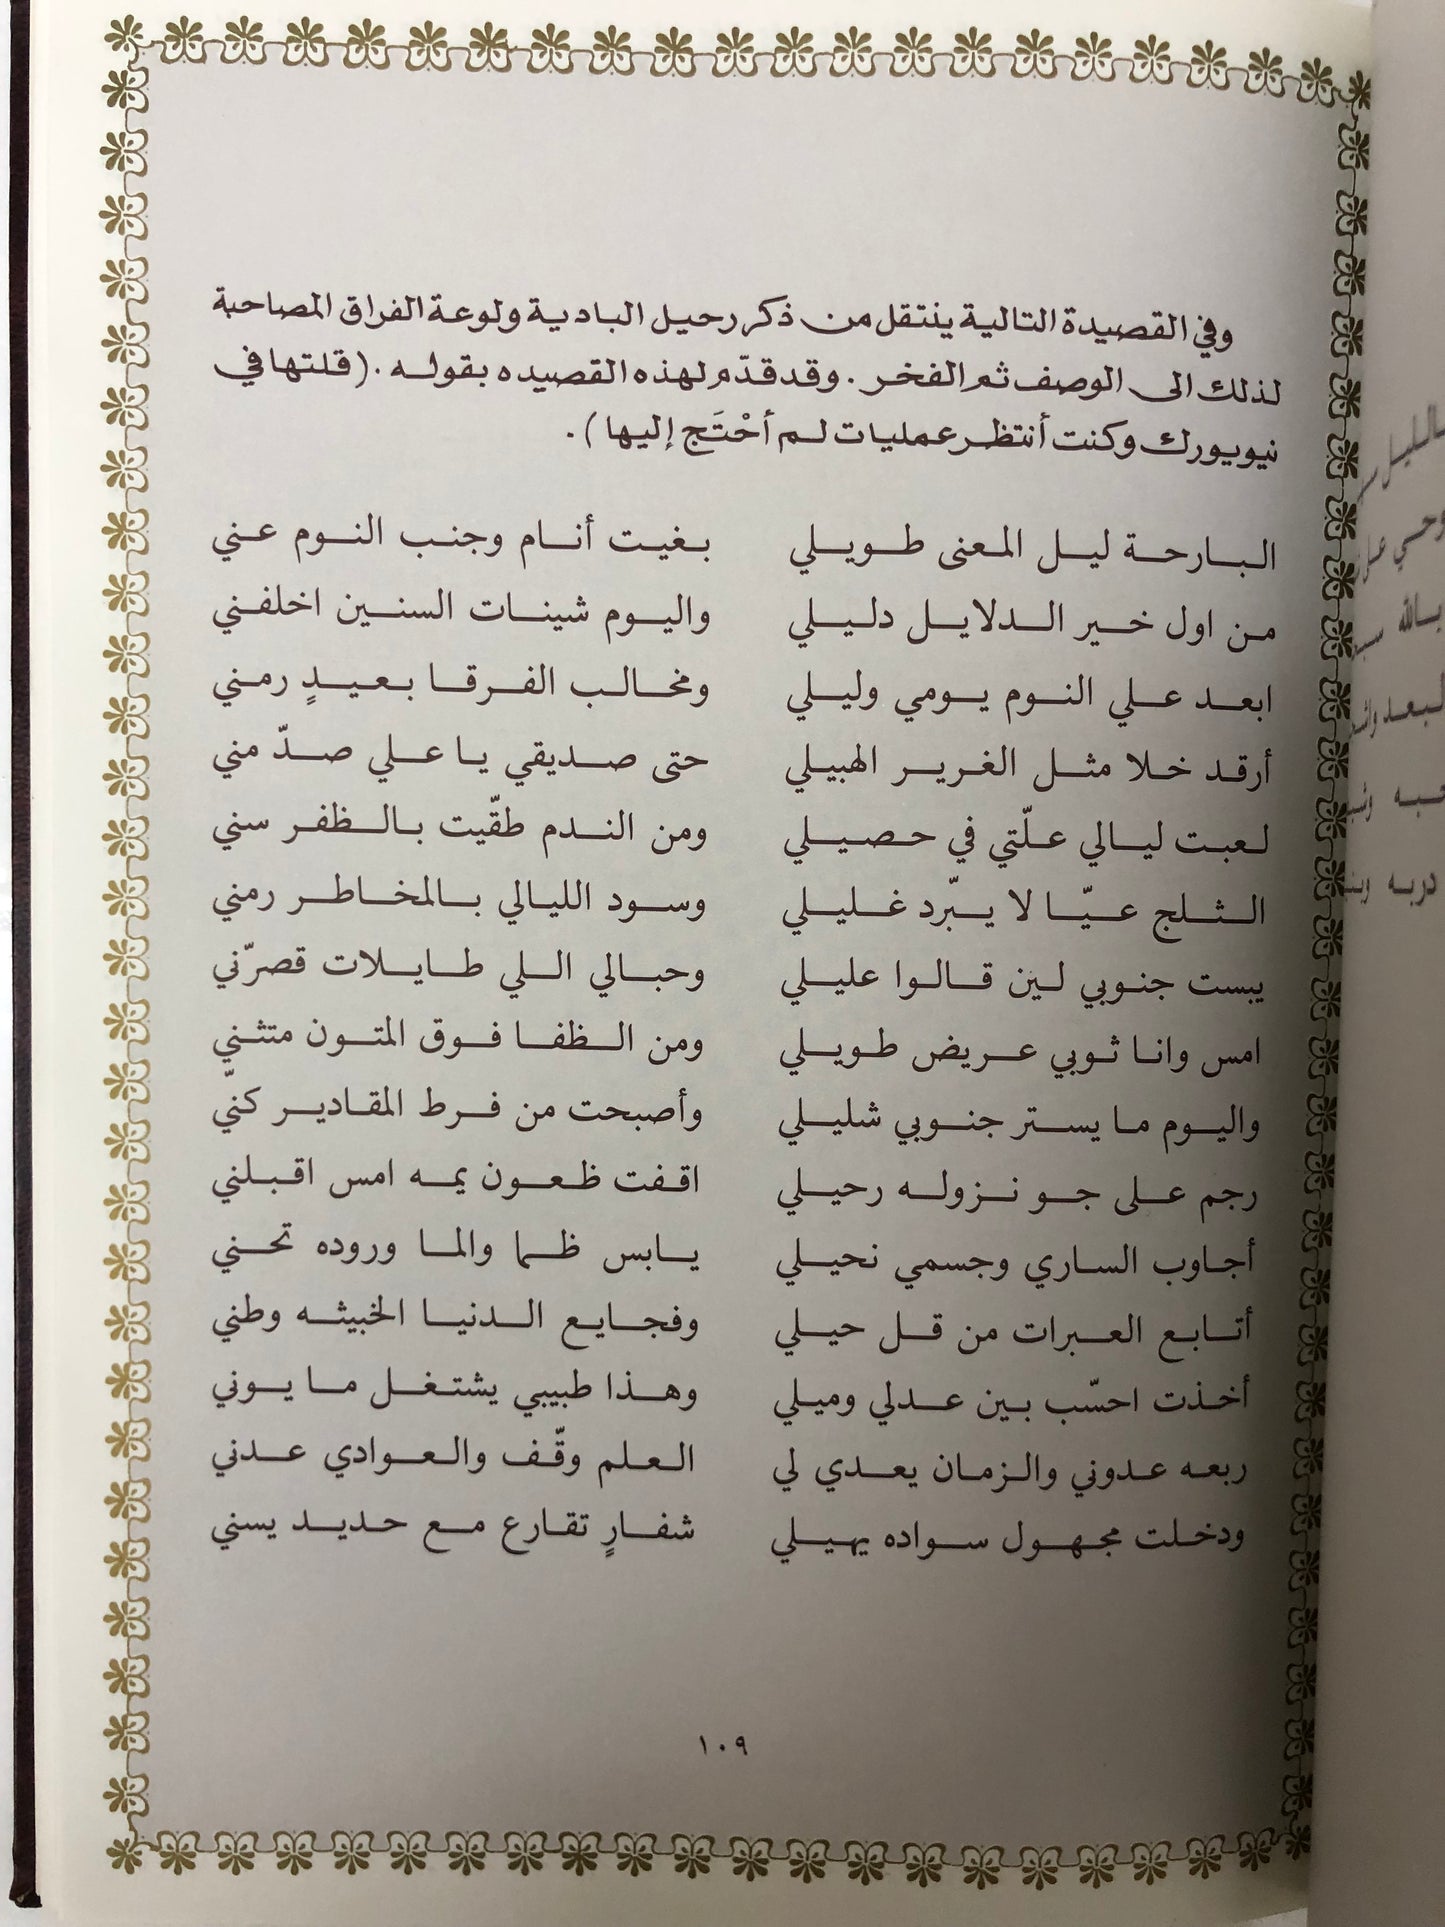 وفي القصيدة التالية ينتقل من ذكر رحيل البادية ولوعة الفراق المصاحبة
لذلك الى الوصف ثم الفخر . وقد قدّم لهذه القصيده بقوله . ( قلتها في
نيويورك وكنت أنتظر عمليات لم أحْتَج إليها ) .
البارحة ليل المعنى طويلي بغيت أنام وجنب النوم عني
من اول خير الدلايل دليلي واليوم شينات السنين اخلفني
ابعد علي النوم يومي وليلي ومخالب الفرقا بعيدٍ رمني
أرقد خلا مثل الغرير الهبيلي حتى صديقي يا علي صدّ مني
لعبت ليالي علّتي في حصيلي ومن الندم طقّيت بالظفر سني
الثلج عيّا لا يبرّد غليلي وسود الليالي بالمخاطر رمني
يبست جنوبي لين قالوا عليلي وحبالي اللي طايلات قصرّني
امس وانا ثوبي عريض طويلي ومن الظفا فوق المتون متثنيّ
واليوم ما يستر جنوبي شليلي وأصبحت من فرط المقادير كنيّ
رجم على جو نزوله رحيلي اقفت ظعون يمه امس اقبلني
أجاوب الساري وجسمي نحيلي يابس ظما والما وروده تحني
أتابع العبرات من قل حيلي وفجايع الدنيا الخبيثه وطني
أخذت احسّب بين عدلي وميلي وهذا طبيبي يشتغل ما يوني
ربعه عدوني والزمان يعدي لي العلم وقّف والعوادي عدني
ودخلت مجهول سواده يهيلي شفارٍ تقارع مع حديد يسني
١٠٩